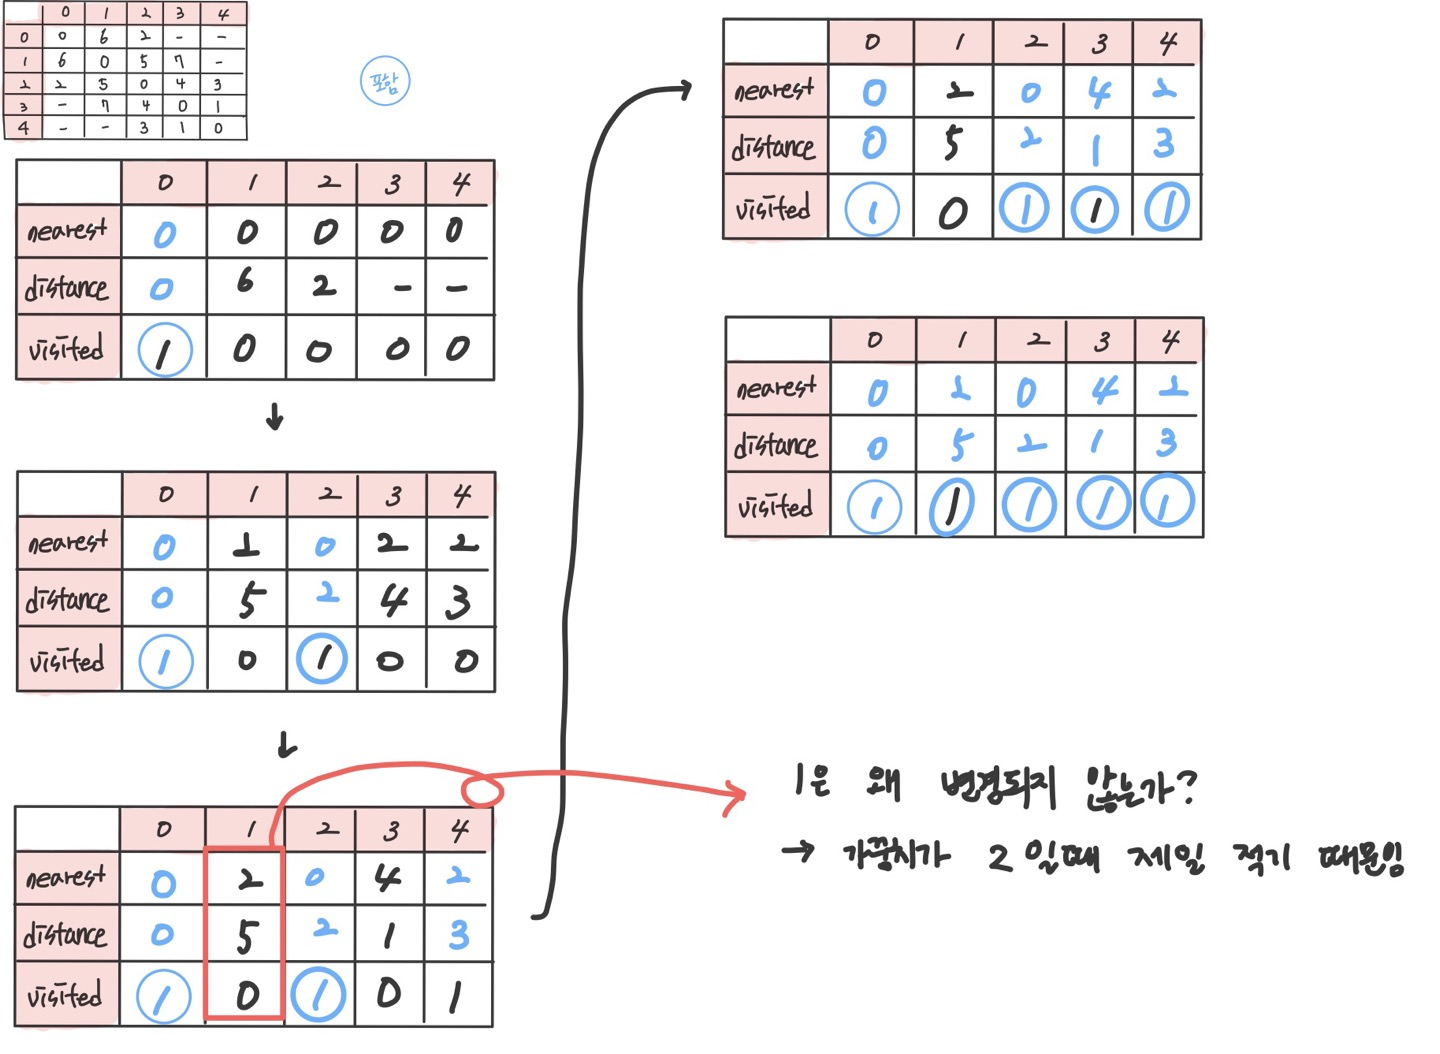 0 1 2 3 4
0 0 6 2 - -
1 6 0 5 7 -
2 2 5 0 4 3
3 - 7 4 0 1
4 - - 3 1 0
포함
0 1 2 3 4
nearest 0 0 0 0 0
distance 0 6 2 - -
visited 1 0 0 0 0
↓
0 1 2 3 4
nearest 0 1 0 2 2
distance 0 5 2 4 3
visited 1 0 1 0 0
↓
0 1 2 3 4
nearest 0 2 0 4 2
distance 0 5 2 1 3
visited 1 0 1 0 1
0 1 2 3 4
nearest 0 2 0 4 2
distance 0 5 2 1 3
visited 1 0 1 1 1
0 1 2 3 4
nearest 0 2 0 4 2
distance 0 5 2 1 3
visited 1 1 1 1 1
1은 왜 변경되지 않는가?
→ 가중치가 2일때 제일 적기 때문임